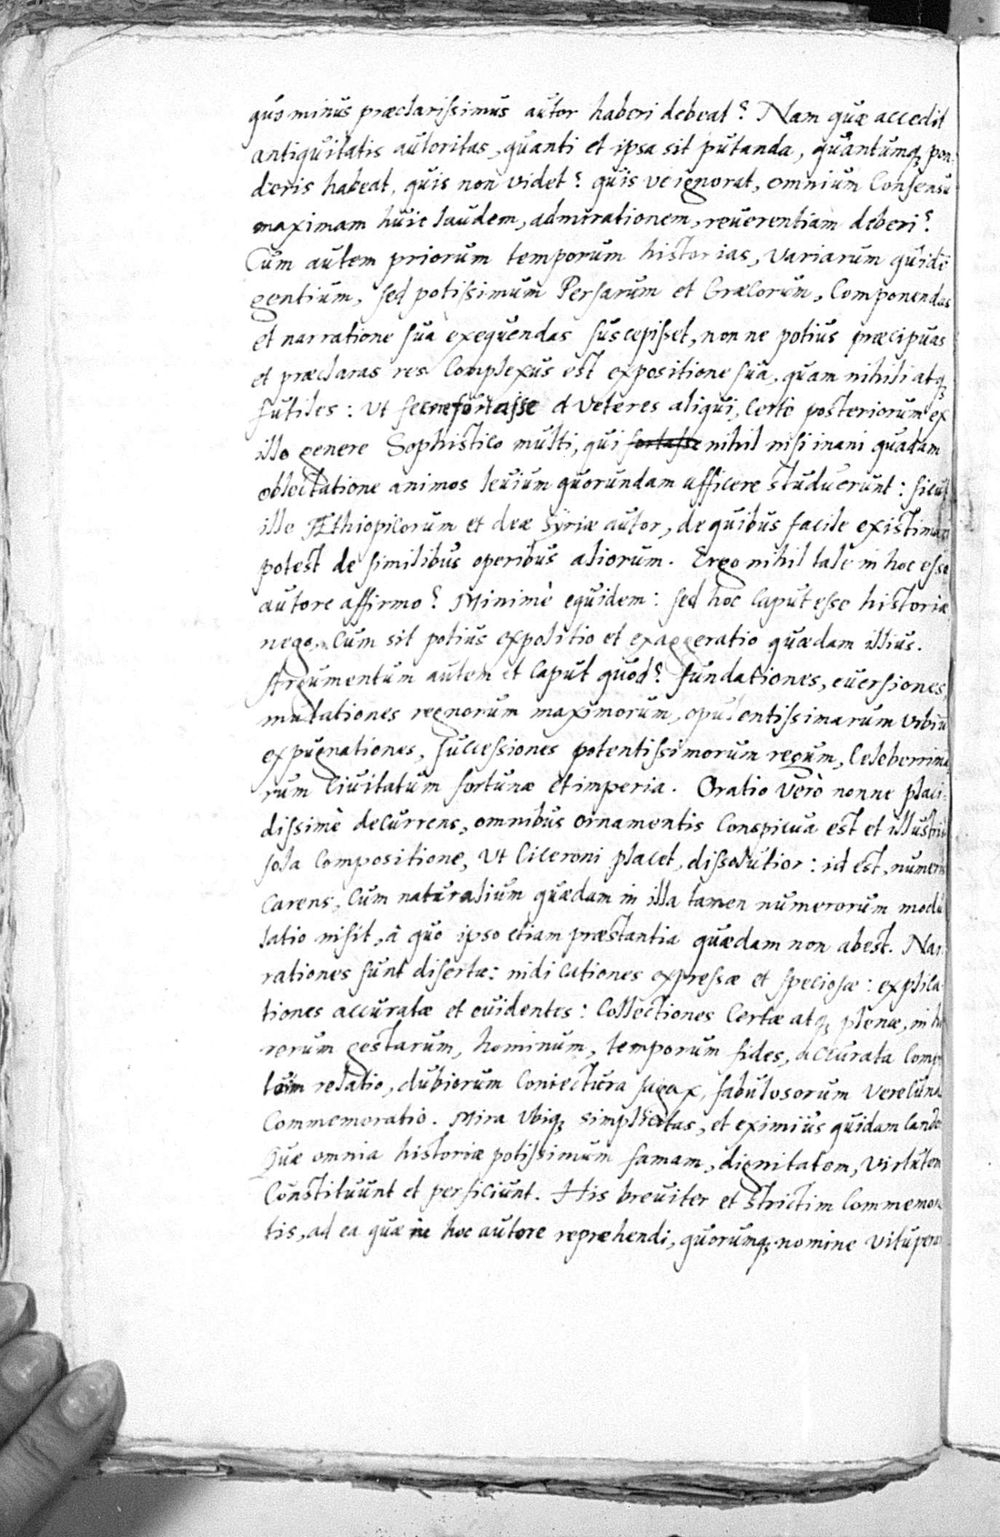 quo minus præclarissimus autor haberi debeat? Nam quæ accedit
antiquitatis autoritas, quanti et ipsa sit putanda, quantumq; pon-
deris habeat, quis non videt? quis ve ignorat, omnium Consensu
maximam huic laudem, admirationem, reuerentiam deberi?
Cum autem priorum temporum historias, variarum quidē
gentium, sed potissimum Persarum et Græcorum, Componendas
et narratione sua exequendas suscepisset, non ne potius præcipuas
et præclaras res Complexus est expositione sua, quam nihili atq;
futiles: ut fecere fortasse et veteres aliqui, Certe posteriorum ex
illo genere Sophistico multi, qui fortasse nihil nisi inani quadam
oblectatione animos leuium quorundam afficere studuerunt: sicut
ille Æthiopicorum et deæ Syriæ autor, de quibus facile existimari
potest de similibus operibus aliorum. Ergo nihil tale in hoc esse
autore affirmo? Minimè equidem: sed hoc Caput esse historiæ
nego, Cum sit potius expolitio et exaggeratio quædam illius.
Argumentum autem et Caput quod? fundationes, euersiones
mutationes regnorum maximorum, opulentissimarum vrbiū
expugnationes, successiones potentissimorum regum, Celeberrima
rum Ciuitatum fortunæ et imperia. Oratio verò nonne placi
dissimè decurrens, omnibus ornamentis Conspicua est et illustris
sola Compositione, ut Ciceroni placet, dissolutior: id est, numeris
Carens, Cum naturalium quædam in illa tamen numerorum modu
latio insit, à quo ipso etiam præstantia quædam non abest. Nar-
rationes sunt disertæ: indicationes expressæ et speciosæ: explica-
tiones accuratæ et euidentes: Collectiones Certæ atq; plenæ, in his
rerum gestarum, hominum, temporum fides, accurata Comper
tum relatio, dubiorum Coniectura sagax, fabulosorum verecunda
Commemoratio. Mira vbiq; simplicitas, et eximius quidam Candor
Quæ omnia historiæ potissimum famam, dignitatem, virtutem
Constituunt et perficiunt. His breuiter et strictim Commemora
tis, ad ea quæ in hoc autore reprehendi, quorumq; nomine vitupera